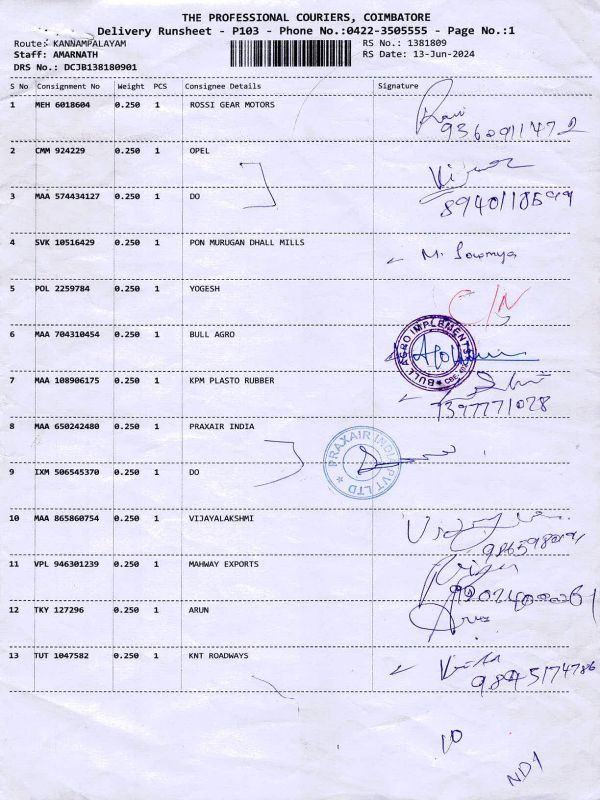 THE PROFESSIONAL COURIERS, COIMBATORE
Delivery Runsheet - P103 - Phone No.:0422-3505555 - Page No.:1
Route: KANNAMPALAYAM RS No.: 1381809
Staff: AMARNATH RS Date: 13-Jun-2024
DRS No.: DCJB138180901
S No Consignment No Weight PCS Consignee Details Signature
1 MEH 6018604 0.250 1 ROSSI GEAR MOTORS Ravi
9360911472
2 CMM 924229 0.250 1 OPEL
3 MAA 574434127 0.250 1 DO
4 SVK 10516429 0.250 1 PON MURUGAN DHALL MILLS M. Sowmya
5 POL 2259784 0.250 1 YOGESH C/N
6 MAA 704310454 0.250 1 BULL AGRO BULL AGRO IMPLEMENTS
7 MAA 108906175 0.250 1 KPM PLASTO RUBBER
8 MAA 650242480 0.250 1 PRAXAIR INDIA PRAXAIR INDIA PVT LTD
9 IXM 506545370 0.250 1 DO
10 MAA 865860754 0.250 1 VIJAYALAKSHMI
11 VPL 946301239 0.250 1 MAHWAY EXPORTS
12 TKY 127296 0.250 1 ARUN Arun
13 TUT 1047582 0.250 1 KNT ROADWAYS
9845174786
10
ND1